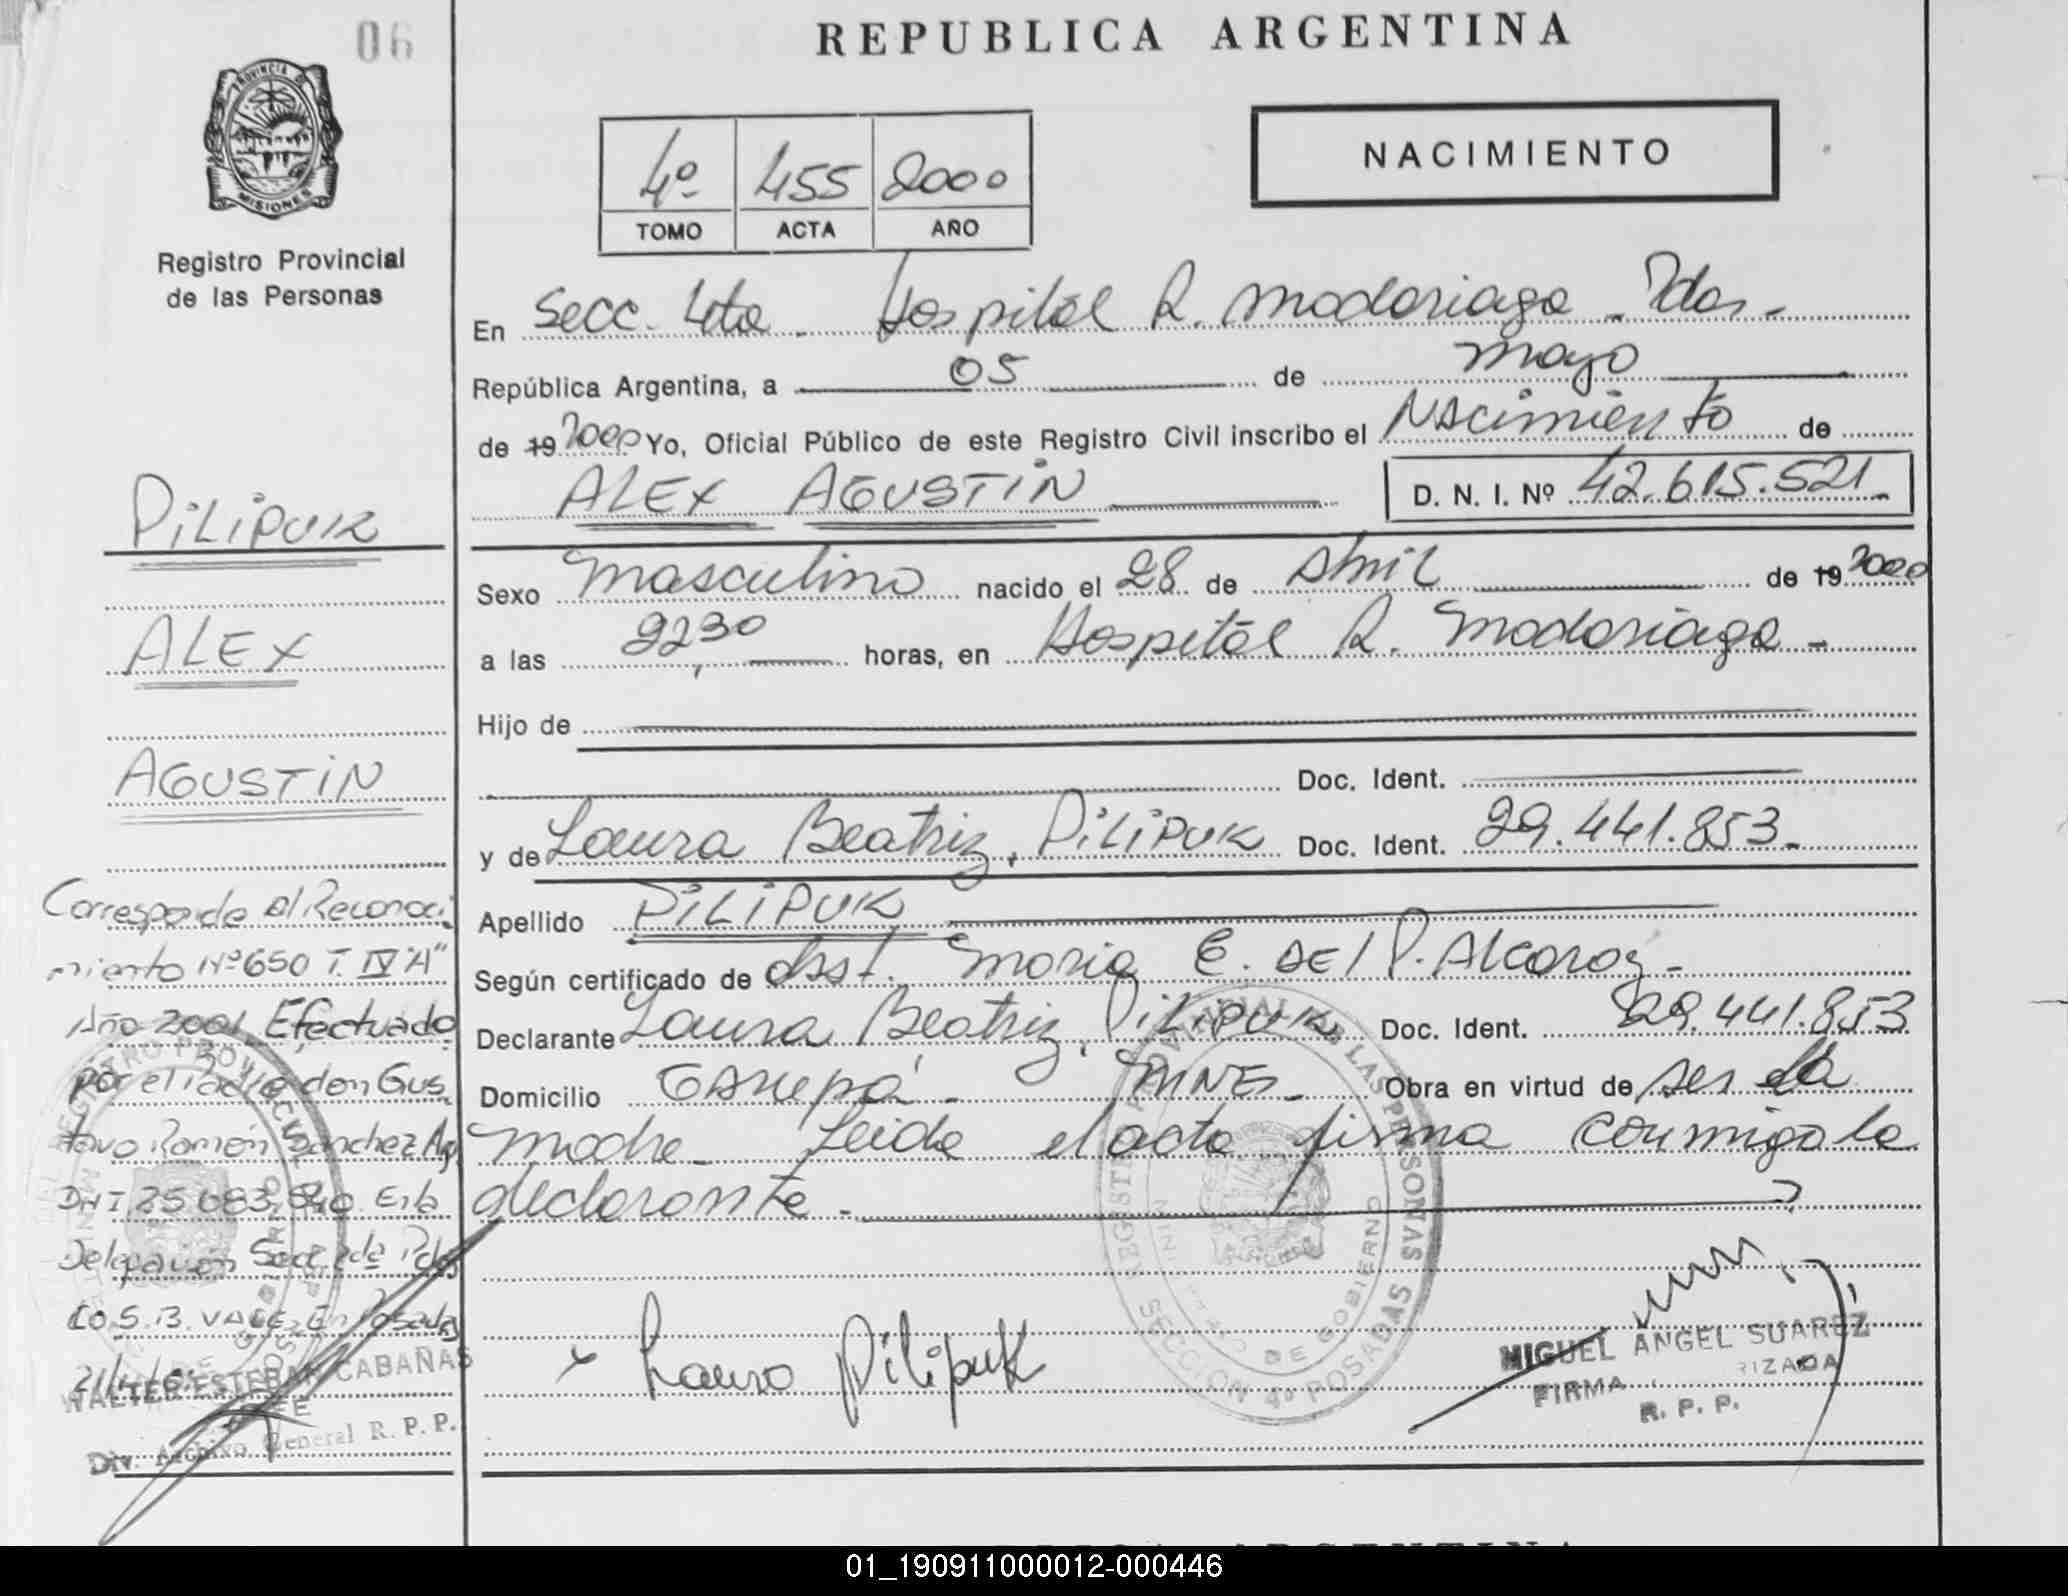 06
REPUBLICA ARGENTINA
PROVINCIA D
MISIONES
Registro Provincial
de las Personas
4º 455 2000
TOMO ACTA AÑO
NACIMIENTO
En Secc. 4ta. Hospital R. Madariaga - Pdas.-
República Argentina, a 05 de mayo
de 19 2000 Yo, Oficial Público de este Registro Civil inscribo el Nacimiento de
ALEX AGUSTIN D. N. I. Nº 42.615.521.
Sexo masculino nacido el 28 de Abril de 19 2000
a las 22,30 horas, en Hospital R. Madariaga -
Hijo de
Doc. Ident.
y de Laura Beatriz, PILIPUK Doc. Ident. 29.441.853.
Apellido PILIPUK
Según certificado de obst. Maria E. DEl P. Alcaraz -
Declarante Laura Beatriz, PILIPUK Doc. Ident. 29.441.853
Domicilio GARUPÁ - MNES. Obra en virtud de ser la
madre. Leida el acta firma conmigo la
declarante.
x Laura Pilipuk
MIGUEL ANGEL SUAREZ
FIRMA RIZADA
R. P. P.
REGISTRO PROVINCIAL DE LAS PERSONAS
DE GOBIERNO
SECCION 4º POSADAS
PILIPUK
ALEX
AGUSTIN
Corresponde al Reconoci
miento Nº 650 T. IV "A"
Año 2001 Efectuado
por el padre don Gus
tavo Ramón Sanchez
DNI 25.683.840 En la
Delegación Secc 2da Pdas
CO.S.B. VALE, En Posadas
WALTER ESTEBAN CABAÑAS
JEFE
Div. Archivo General R. P. P.
01_190911000012-000446